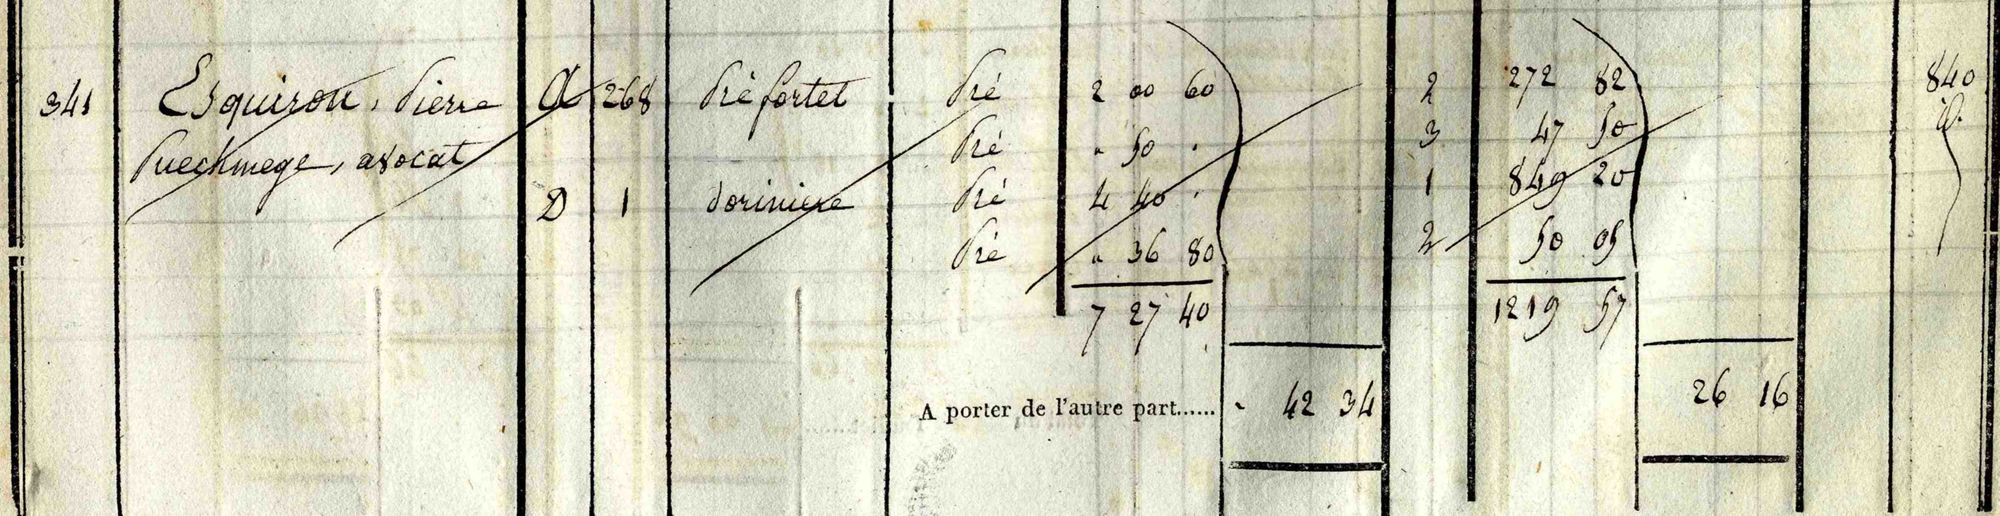 341 Esquirou, Pierre A 268 Pré fortet Pré 2 00 60 2 272 82 840
Puechmege, avocat Pré " 50 " 3 47 50
D 1 Pré 4 40 " 1 849 20
Pré " 36 80 2 50 05
7 27 40 1219 57
A porter de l'autre part...... " 42 34 26 16